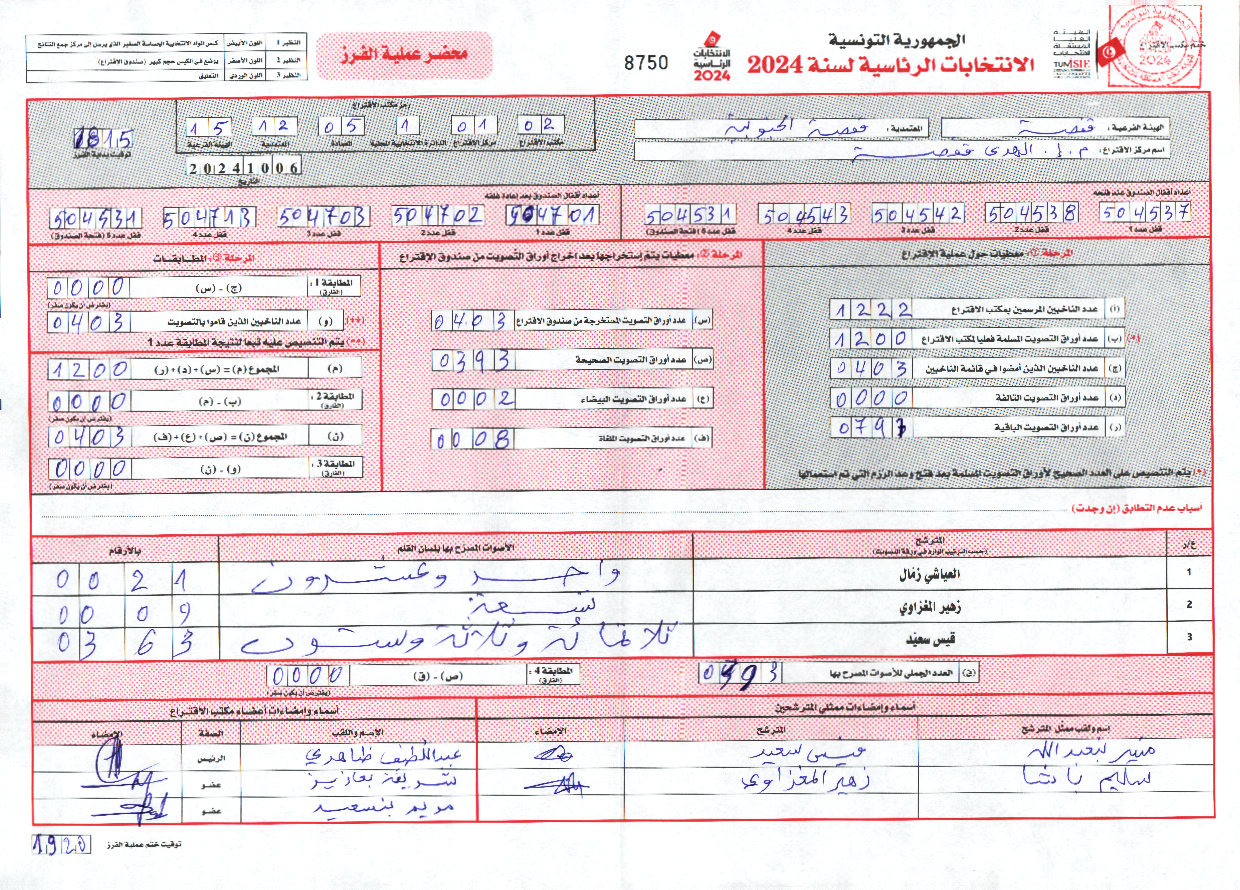 الجمهورية التونسية
الانتخابات الرئاسية لسنة 2024
الهيئة العليا المستقلة للانتخابات
TUNISIE
ختم مكتب الاقتراع
الانتخابات الرئاسية 2024
8750
محضر عملية الفرز
النظير 1 اللون الأبيض كس المواد الانتخابية الحساسة الصغير الذي يرسل إلى مركز جمع النتائج
النظير 2 اللون الأصفر يوضع في الكيس حجم كبير (صندوق الاقتراع)
النظير 3 اللون الوردي التعليق
الهيئة الفرعية : قفصة
المعتمدية : قفصة الجنوبية
اسم مركز الاقتراع : م. إ. الهدى قفصة
رمز مكتب الاقتراع
02 01 1 05 12 15
مكتب الاقتراع مركز الاقتراع الدائرة الانتخابية المحلية العمادة المعتمدية الهيئة الفرعية
20241006
التاريخ
1815
توقيت بداية الفرز
أعداد أقفال الصندوق عند فتحه
504537 504538 504542 504543 504531
قفل عدد 1 قفل عدد 2 قفل عدد 3 قفل عدد 4 قفل عدد 5 (فتحة الصندوق)
أعداد أقفال الصندوق بعد إعادة غلقه
504701 504702 504703 504713 504531
قفل عدد 1 قفل عدد 2 قفل عدد 3 قفل عدد 4 قفل عدد 5 (فتحة الصندوق)
المرحلة ①: معطيات حول عملية الاقتراع
(أ) عدد الناخبين المرسمين بمكتب الاقتراع 1222
(*) (ب) عدد أوراق التصويت المسلمة فعليا لمكتب الاقتراع 1200
(ج) عدد الناخبين الذين أمضوا في قائمة الناخبين 0403
(د) عدد أوراق التصويت التالفة 0000
(ر) عدد أوراق التصويت الباقية 0797
(*) يتم التنصيص على العدد الصحيح لأوراق التصويت المسلمة بعد فتح وعد الرزم التي تم استعمالها
المرحلة ②: معطيات يتم إستخراجها بعد إخراج أوراق التصويت من صندوق الاقتراع
(س) عدد أوراق التصويت المستخرجة من صندوق الاقتراع 0403
(ص) عدد أوراق التصويت الصحيحة 0393
(ع) عدد أوراق التصويت البيضاء 0002
(ف) عدد أوراق التصويت الملغاة 0008
المرحلة ③: المطابقات
المطابقة 1 : (الفارق) (ج) - (س) 0000
(يفترض أن يكون صفر)
(**) (و) عدد الناخبين الذين قاموا بالتصويت 0403
(**) يتم التنصيص عليه تبعا لنتيجة المطابقة عدد 1
(م) المجموع (م) = (س) + (د) + (ر) 1200
المطابقة 2 : (الفارق) (ب) - (م) 0000
(يفترض أن يكون صفر)
(ن) المجموع (ن) = (ص) + (ع) + (ف) 0403
المطابقة 3 : (الفارق) (و) - (ن) 0000
(يفترض أن يكون صفر)
اسباب عدم التطابق (إن وجدت)
ع/ر المترشح الأصوات المصرح بها بلسان القلم بالأرقام
(حسب الترتيب الوارد في ورقة التصويت)
1 العياشي زمال واحد وعشرون 0021
2 زهير المغزاوي تسعة 0009
3 قيس سعيد ثلاثمائة وثلاثة وستون 0363
(ق) العدد الجملي للأصوات المصرح بها 0393
المطابقة 4 : (الفارق) (ص) - (ق) 0000
(يفترض أن يكون صفر)
أسماء وإمضاءات ممثلي المترشحين
اسم ولقب ممثل المترشح المترشح الامضاء
منير بنعبد الله قيس سعيد
سليم باشا زهير المغزاوي
أسماء وإمضاءات أعضاء مكتب الاقتراع
الإسم واللقب الصفة الإمضاء
عبد اللطيف طاهري الرئيس
شريفة بعازيز عضو
مريم بنسعيد عضو
توقيت ختم عملية الفرز 1920